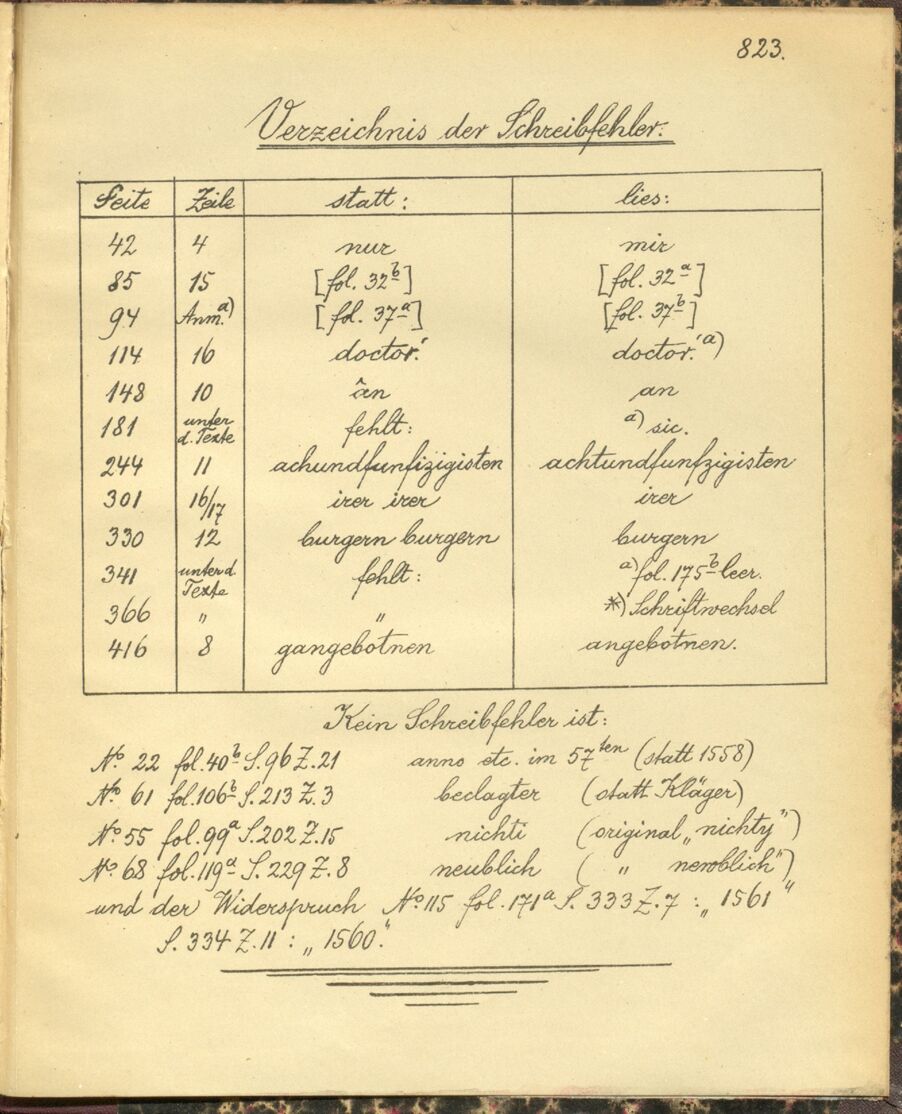 823.
Verzeichnis der Schreibfehler.
Seite Zeile statt: lies:
42 4 nur mir
85 15 [fol. 32b] [fol. 32a]
94 Anm.a) [fol. 37a] [fol. 37b]
114 16 doctor.' doctor.'a)
148 10 ân an
181 unter d. Texte fehlt: a) sic.
244 11 achundfunfizigisten achtundfunfzigisten
301 16/17 irer irer irer
330 12 burgern burgern burgern
341 unter d. Texte fehlt: a) fol. 175b leer.
366 " " *) Schriftwechsel
416 8 gangebotnen angebotnen.
Kein Schreibfehler ist:
No. 22 fol. 40b S. 96 Z. 21 anno etc. im 57ten (statt 1558)
No. 61 fol. 106b S. 213 Z. 3 beclagter (statt Kläger)
No. 55 fol. 99a S. 202 Z. 15 nichti (original „nichty")
No. 68 fol. 119a S. 229 Z. 8 neublich ( " newblich")
und der Widerspruch No. 115 fol. 171a S. 333 Z. 7 : „1561"
S. 334 Z. 11 : „1560."